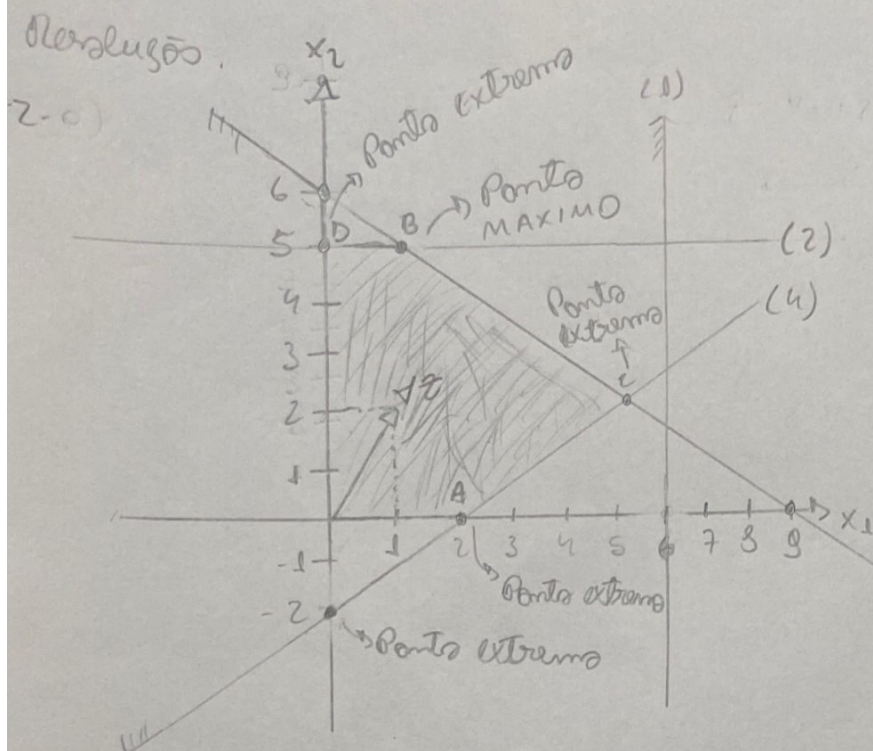 Resolução.
x₂
Ponto extremo
(1)
6
D
B
Ponto
MAXIMO
5
(2)
4
Ponto
extremo
(4)
3
C
2
∇z
1
A
1
2
3
4
5
6
7
8
9
x₁
-1
Ponto extremo
-2
Ponto extremo